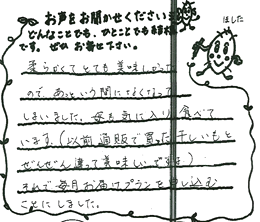 お声をお聞かせください
どんなことでも、ひとことでも結構
です。ぜひお書き下さい。
ほした
柔らかくてとても美味しかった
ので、あっという間になくなって
しまいました。娘も気に入り食べて
います。(以前通販で買った干しいもと
ぜんぜん違って美味しいですね)
それで毎月お届けプランを申し込む
ことにしました。